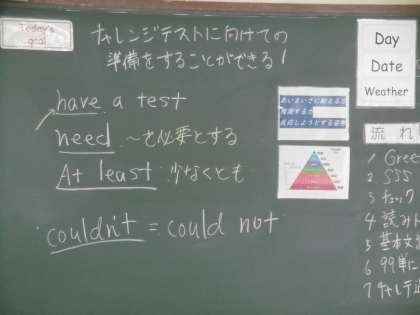 Today's
goal
チャレンジテストに向けての
準備をすることができる!
have a test
need ～を必要とする
At least 少なくとも
couldn't = could not
あいまいさに耐える力
推測する力
反応しようとする姿勢
Day
Date
Weather
流れ
1 Gree
2 SSS
3 チェック
4 読み
5 基本文
6 99単に
7 チャレテ